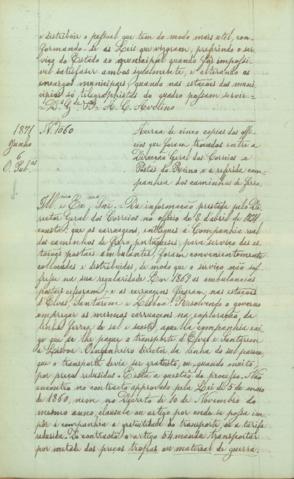 e distribuir o pessoal que tem do modo mais util, con-
formando-se as Leis que vigoram, preferindo o ser-
viço do Estado ao municipal quando for impossi-
vel satisfazer ambos egualmente, e alterando os
encargos municipaes quando nas estações dos muni-
cipios os telegraphistas do quadro possam provir.
D. G. de V. Ex.ª A. C. Avelino
1871
Junho
6
O. Pub.as
N.º 1060
Acerca de cinco copias dos offi-
cios que foram trocados entre a
Direcção Geral dos Correios e
Postas do Reino e a referida com-
panhia dos caminhos de ferro.
Ill.mo e Ex.mo Snr. Da informação prestada pelo Di-
rector Geral dos Correios no officio de 8 d'abril de 1871
consta que as carruagens, entregues á Companhia real
dos caminhos de ferro portuguezes, para serviço das es-
tações postaes ambulantes, foram convenientemente
collocadas e distribuidas, de modo que o serviço não sof-
fresse na sua regularidade. Em 1869 as ambulancias
postaes cessaram, e as carruagens ficaram, nas estações
d'Elvas, Santarem e Lisboa. Resolvendo o governo
empregar as mesmas carruagens na exploração, da
linha ferrea do sul e sueste, a companhia exi-
giu que se lhe pague o transporte d'Elvas e Santarem
a Lisboa. O engenheiro director da linha do sul pensa
que o transporte devia ser gratuito, ou quando muito
por preço reduzido. É esta a questão do processo. Não
encontro no contracto approvado pela Lei de 5 de maio
de 1860, nem no Decreto de 10 de Novembro do
mesmo anno, clausula ou artigo por onde se possa im-
pôr á companhia a gratuidade do transporte, ou a tarifa
reduzida. No contracto o artigo 54 manda transportar
por metade dos preços tropas ou material de guerra.